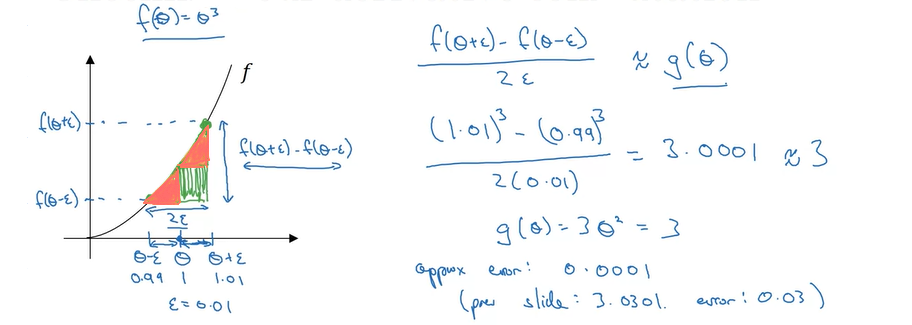 f(θ) = θ³
f
f(θ+ε)
f(θ-ε)
f(θ+ε) - f(θ-ε)
2ε
θ-ε θ θ+ε
0.99 1 1.01
ε = 0.01
f(θ+ε) - f(θ-ε)
2ε
≈ g(θ)
(1.01)³ - (0.99)³
2(0.01)
= 3.0001 ≈ 3
g(θ) = 3θ² = 3
approx error: 0.0001
(prev slide: 3.0301. error: 0.03)